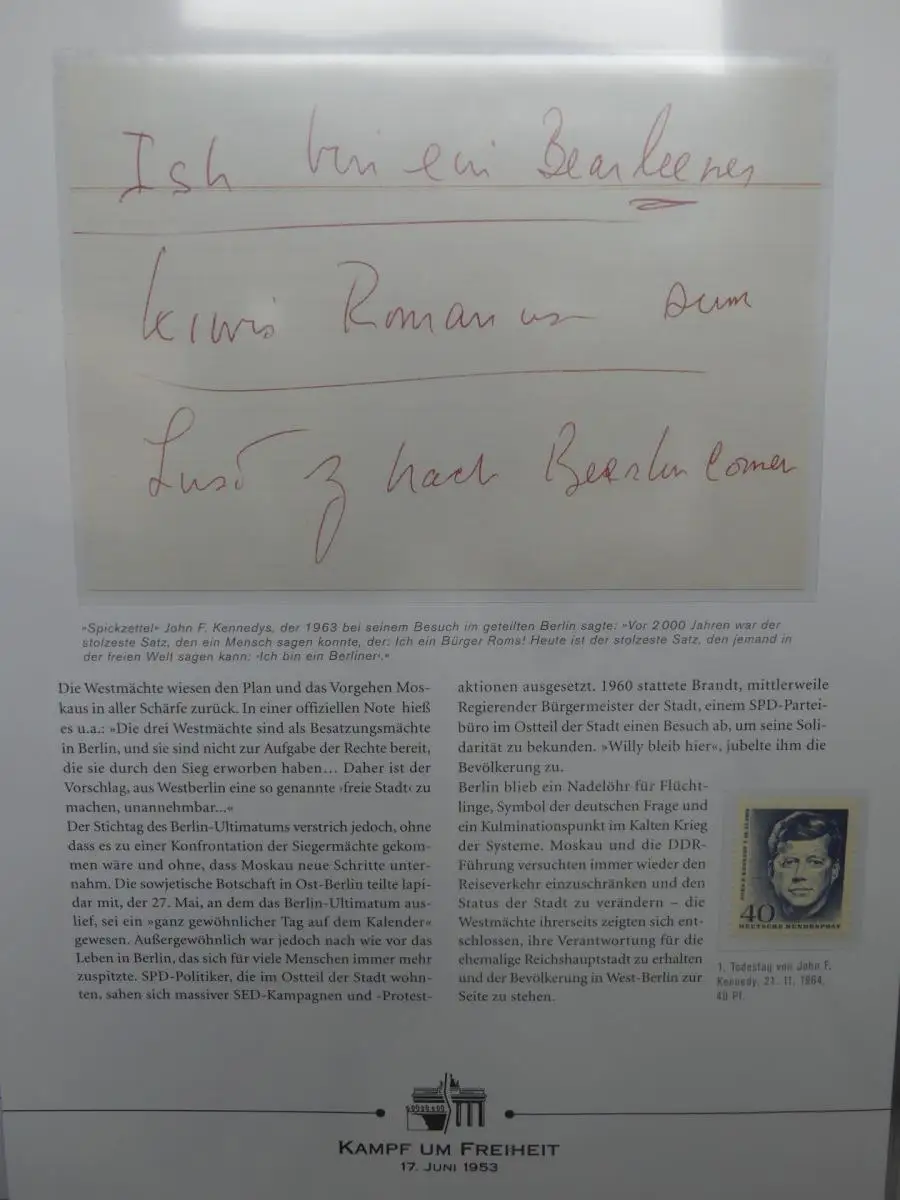 Ish bin ein Bearleener
kiwis Romanus sum
Lust z nach Bearlin comen
»Spickzettel« John F. Kennedys, der 1963 bei seinem Besuch im geteilten Berlin sagte: »Vor 2000 Jahren war der
stolzeste Satz, den ein Mensch sagen konnte, der: Ich ein Bürger Roms! Heute ist der stolzeste Satz, den jemand in
der freien Welt sagen kann: ›Ich bin ein Berliner‹.«
Die Westmächte wiesen den Plan und das Vorgehen Mos-
kaus in aller Schärfe zurück. In einer offiziellen Note hieß
es u.a.: »Die drei Westmächte sind als Besatzungsmächte
in Berlin, und sie sind nicht zur Aufgabe der Rechte bereit,
die sie durch den Sieg erworben haben... Daher ist der
Vorschlag, aus Westberlin eine so genannte ›freie Stadt‹ zu
machen, unannehmbar...«
Der Stichtag des Berlin-Ultimatums verstrich jedoch, ohne
dass es zu einer Konfrontation der Siegermächte gekom-
men wäre und ohne, dass Moskau neue Schritte unter-
nahm. Die sowjetische Botschaft in Ost-Berlin teilte lapi-
dar mit, der 27. Mai, an dem das Berlin-Ultimatum aus-
lief, sei ein »ganz gewöhnlicher Tag auf dem Kalender«
gewesen. Außergewöhnlich war jedoch nach wie vor das
Leben in Berlin, das sich für viele Menschen immer mehr
zuspitzte. SPD-Politiker, die im Ostteil der Stadt wohn-
ten, sahen sich massiver SED-Kampagnen und -Protest-
aktionen ausgesetzt. 1960 stattete Brandt, mittlerweile
Regierender Bürgermeister der Stadt, einem SPD-Partei-
büro im Ostteil der Stadt einen Besuch ab, um seine Soli-
darität zu bekunden. »Willy bleib hier«, jubelte ihm die
Bevölkerung zu.
Berlin blieb ein Nadelöhr für Flücht-
linge, Symbol der deutschen Frage und
ein Kulminationspunkt im Kalten Krieg
der Systeme. Moskau und die DDR-
Führung versuchten immer wieder den
Reiseverkehr einzuschränken und den
Status der Stadt zu verändern – die
Westmächte ihrerseits zeigten sich ent-
schlossen, ihre Verantwortung für die
ehemalige Reichshauptstadt zu erhalten
und der Bevölkerung in West-Berlin zur
Seite zu stehen.
JOHN F. KENNEDY
40
DEUTSCHE BUNDESPOST
1. Todestag von John F.
Kennedy, 21. 11. 1964,
40 Pf.
KAMPF UM FREIHEIT
17. JUNI 1953